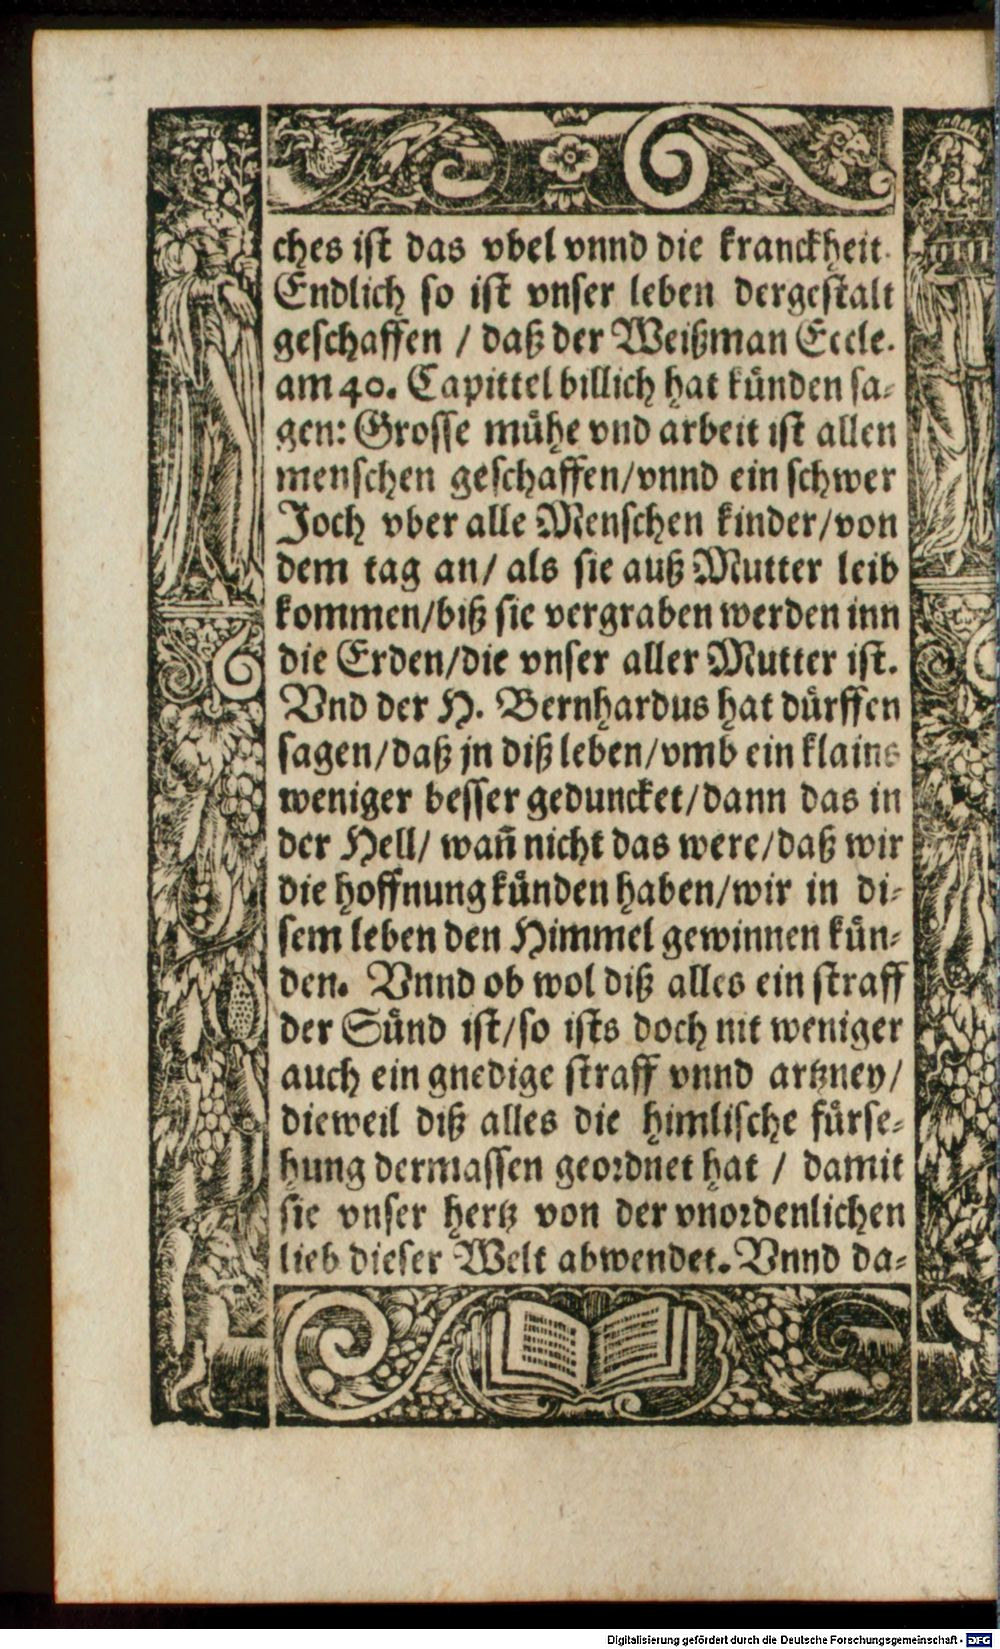 ches ist das vbel vnnd die kranckheit.
Endlich so ist vnser leben dergestalt
geschaffen / daß der Weißman Eccle.
am 40. Capittel billich hat künden sa-
gen: Grosse mühe vnd arbeit ist allen
menschen geschaffen/vnnd ein schwer
Joch vber alle Menschen kinder/von
dem tag an/ als sie auß Mutter leib
kommen/biß sie vergraben werden inn
die Erden/die vnser aller Mutter ist.
Vnd der H. Bernhardus hat dürffen
sagen/daß jn diß leben/vmb ein klains
weniger besser geduncket/dann das in
der Hell/ wañ nicht das were/daß wir
die hoffnung künden haben/wir in di-
sem leben den Himmel gewinnen kün-
den. Vnnd ob wol diß alles ein straff
der Sünd ist/so ists doch nit weniger
auch ein gnedige straff vnnd artzney/
dieweil diß alles die himlische fürse-
hung dermassen geordnet hat / damit
sie vnser hertz von der vnordenlichen
lieb dieser Welt abwendet. Vnnd da-
Digitalisierung gefördert durch die Deutsche Forschungsgemeinschaft - DFG